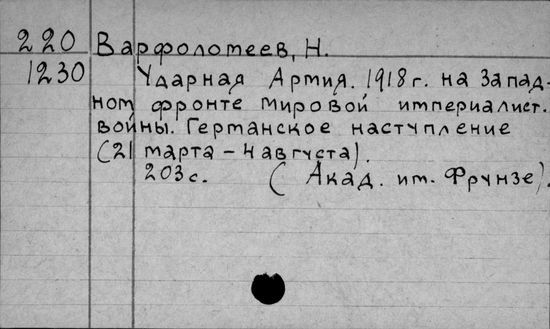 220 Варфоломеев, Н.
1230 Ударная Армия. 1918 г. на Запад-
ном фронте мировой империалист.
войны. Германское наступление
(21 марта – 4 августа).
203 с. (Акад. им. Фрунзе).